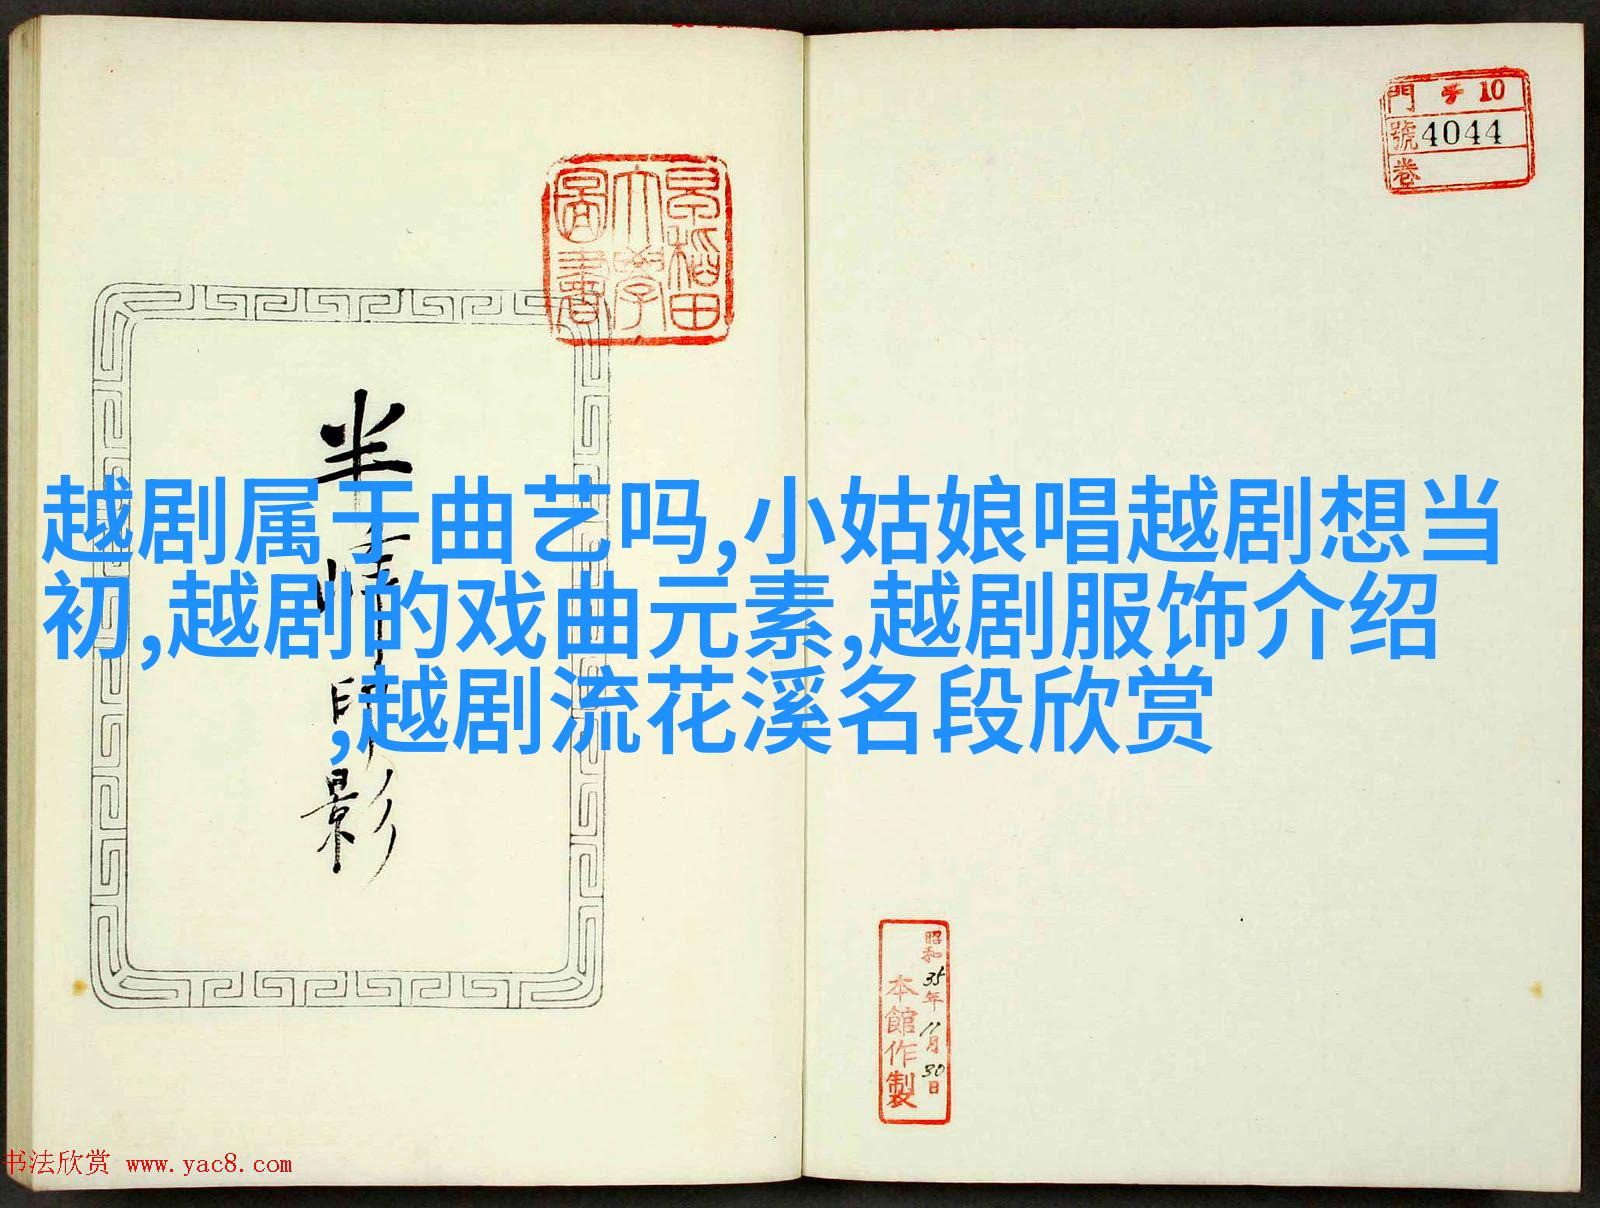 門 10
號 4044
卷
早稻田
大學
圖書
越剧属于曲艺吗,小姑娘唱越剧想当
初,越剧的戏曲元素,越剧服饰介绍
,越剧流花溪名段欣赏
半
印影
昭和35年11月30日
本館作製
书法欣赏 www.yac8.com